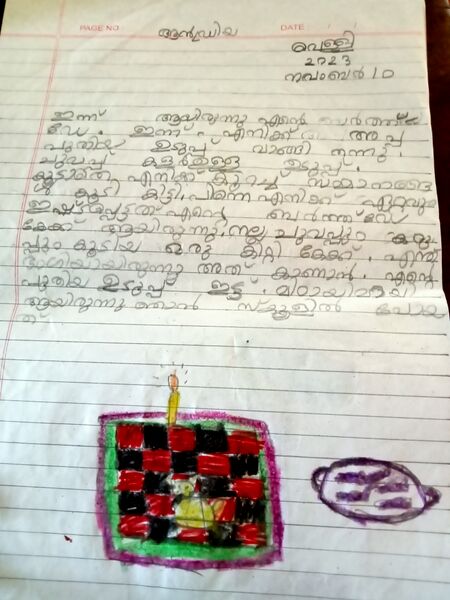 PAGE NO:
DATE:
ആൻഡ്രിയ
വെള്ളി
2023
നവംബർ 10
ഇന്ന് ആയിരുന്നു എന്റെ ബർത്ത്
ഡേ. ഇന്ന് എനിക്ക് അപ്പ
പുതിയ ഉടുപ്പ് വാങ്ങി തന്നു.
ചുവപ്പ് കളർ ഉടുപ്പ്.
കൂടാതെ എനിക്ക് കുറച്ച് സമ്മാനങ്ങ
ളും കൂടി കിട്ടി. പിന്നെ എനിക്ക് ഏറ്റവും
ഇഷ്ടപ്പെട്ടത് എന്റെ ബെർത്ത് ഡേ
കേക്ക് ആയിരുന്നു. നല്ല ചുവപ്പും കറു
പ്പും കൂടിയ ഒരു കിറ്റി കേക്ക്. എന്ത്
ഭംഗിയായിരുന്നു അത് കാണാൻ. എന്റെ
പുതിയ ഉടുപ്പ് ഇട്ട് മിഠായിയുമായി
ആയിരുന്നു ഞാൻ സ്കൂളിൽ പോയ
ത്.